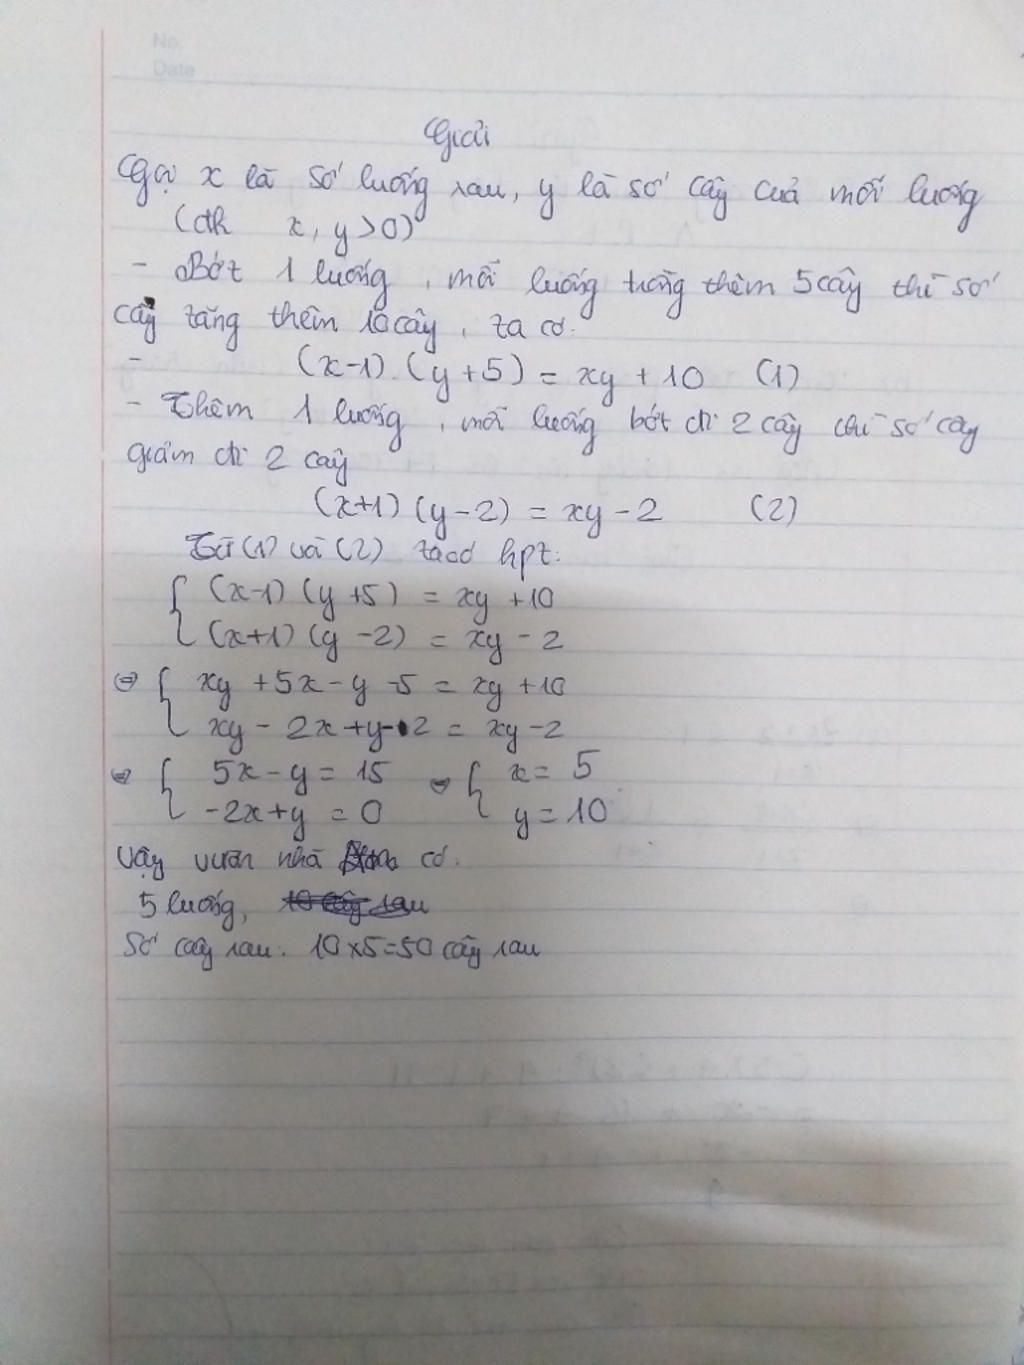 No.
Date
Giải
Gọi x là số luống rau, y là số cây của mỗi luống
(đk x, y > 0)
- Bớt 1 luống, mỗi luống trồng thêm 5 cây thì số
cây tăng thêm 10 cây, ta có:
- (x-1).(y+5) = xy + 10 (1)
- Thêm 1 luống, mỗi luống bớt đi 2 cây thì số cây
giảm đi 2 cây
(x+1)(y-2) = xy - 2 (2)
Từ (1) và (2) ta có hpt:
(x-1)(y+5) = xy + 10
(x+1)(y-2) = xy - 2
⇔ { xy + 5x - y - 5 = xy + 10
xy - 2x + y - 2 = xy - 2
⇔ { 5x - y = 15 ⇔ { x = 5
-2x + y = 0 y = 10
Vậy vườn nhà có:
5 luống,
Số cây rau: 10 x 5 = 50 cây rau